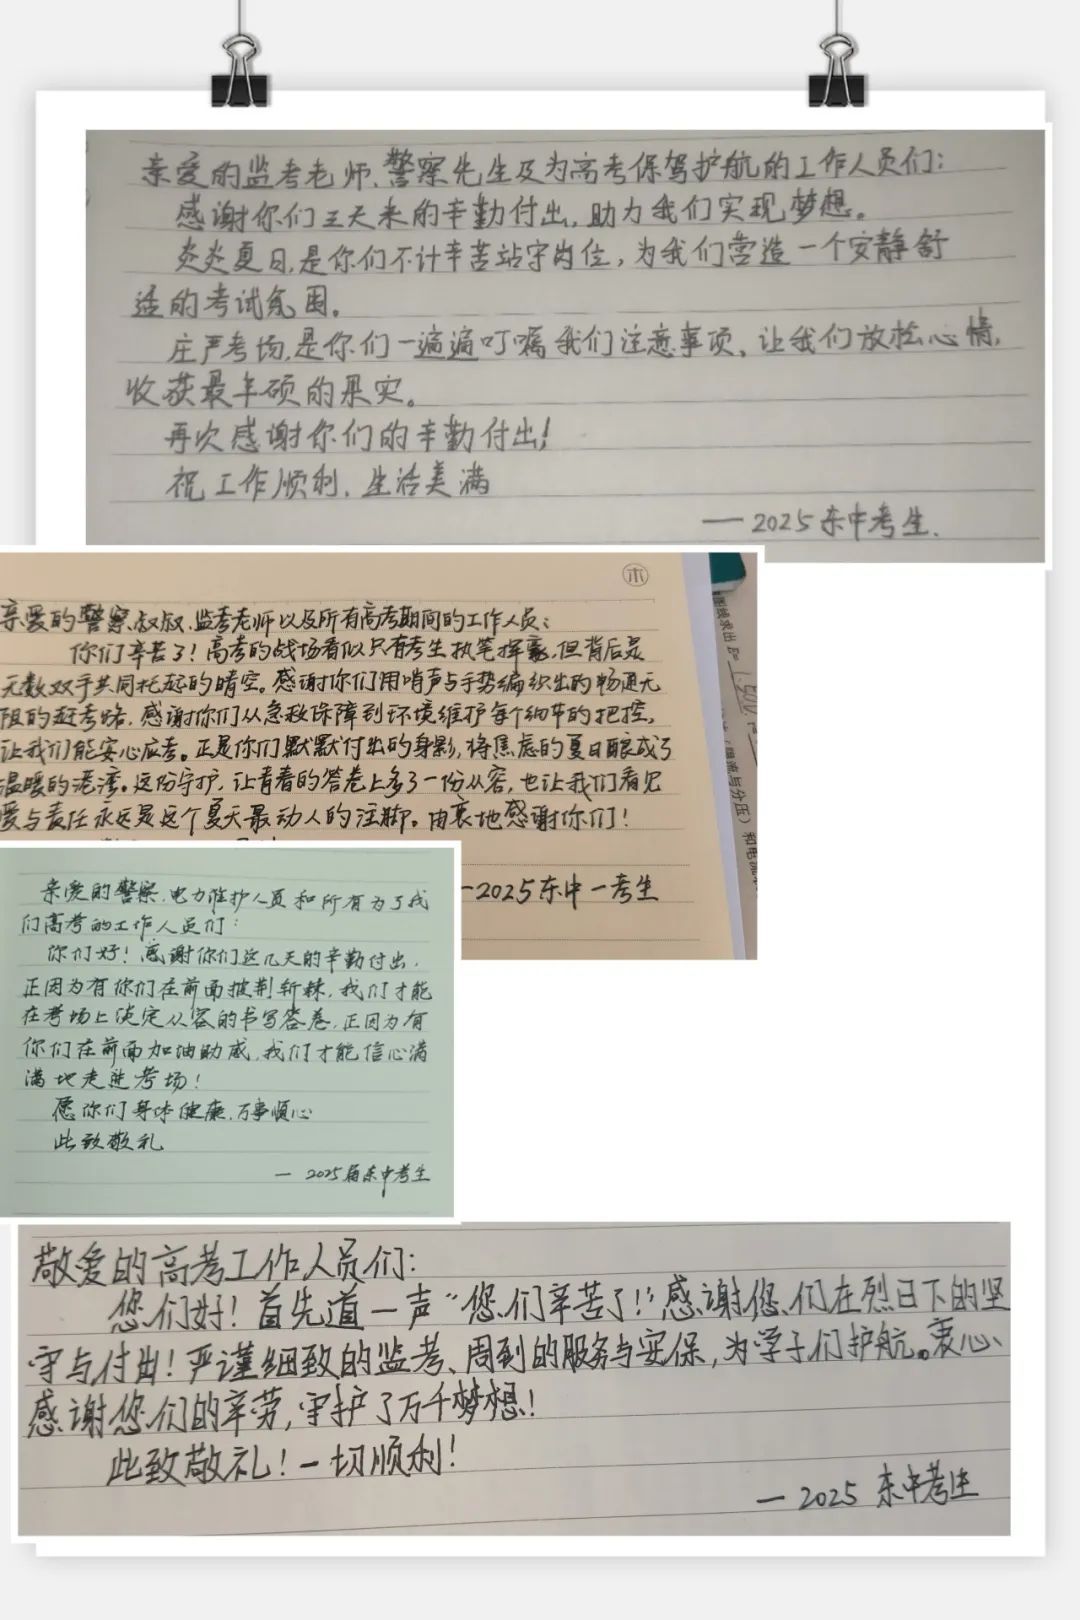 亲爱的监考老师、警察先生及为高考保驾护航的工作人员们：
感谢你们三天来的辛勤付出，助力我们实现梦想。
炎炎夏日，是你们不计辛苦站守岗位，为我们营造一个安静舒
适的考试氛围。
庄严考场，是你们一遍遍叮嘱我们注意事项、让我们放松心情，
收获最丰硕的果实。
再次感谢你们的辛勤付出！
祝工作顺利、生活美满
——2025东中考生.
木
亲爱的警察叔叔、监考老师以及所有高考期间的工作人员：
你们辛苦了！高考的战场看似只有考生执笔挥毫，但背后是
无数双手共同托起的晴空。感谢你们用哨声与手势编织出的畅通无
阻的赶考路，感谢你们从急救保障到环境维护每个细节的把控，
让我们能安心应考。正是你们默默付出的身影，将焦虑的夏日酿成了
温暖的港湾。这份守护，让青春的答卷上多了一份从容，也让我们看见
爱与责任永远是这个夏天最动人的注脚。由衷地感谢你们！
—2025东中一考生
亲爱的警察、电力维护人员和所有为了我
们高考的工作人员们：
你们好！感谢你们这几天的辛勤付出，
正因为有你们在前面披荆斩棘，我们才能
在考场上淡定从容的书写答卷，正因为有
你们在前面加油助威，我们才能信心满
满地走进考场！
愿你们身体健康、万事顺心
此致敬礼
— 2025届东中考生
敬爱的高考工作人员们：
您们好！首先道一声“您们辛苦了！”感谢您们在烈日下的坚
守与付出！严谨细致的监考、周到的服务与安保，为学子们护航。衷心
感谢您们的辛劳，守护了万千梦想！
此致敬礼！一切顺利！
— 2025 东中考生